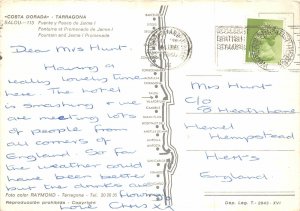 «COSTA DORADA» - TARRAGONA
SALOU - 113 Fuente y Paseo de Jaime I
Fontaine et Promenade de Jaime I
Fountain and Jaime I Promenade
Dear Mrs Hunt.
Having a
really lovely time
here. The hotel
is smashing & we
are meeting lots
of people from
all corners of
England. So far
the weather could
have been better
but the drinks are
flowing
Love Chris XX
Foto color RAYMOND - Tarragona - Tel.
Prohibida reproducción - Copyright
Mrs Hunt.
C/o
Heathbare
Hemel
Hempstead
Herts
England.
Dep. Leg. T.
XVI